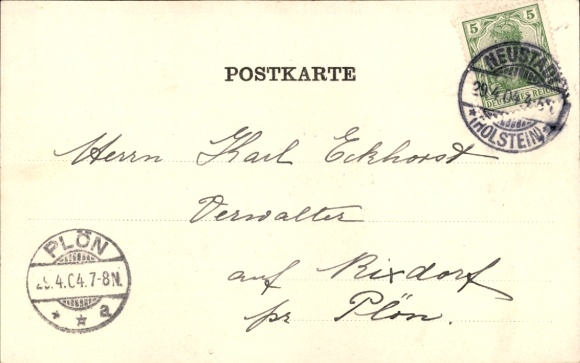 5 5
DEUTSCHES REICH
NEUSTADT
29.4.04.4-5N.
(HOLSTEIN)
POSTKARTE
Herrn Karl Eckhorst
Verwalter
auf Rixdorf
pr Plön.
PLÖN
29.4.04.7-8N.
a